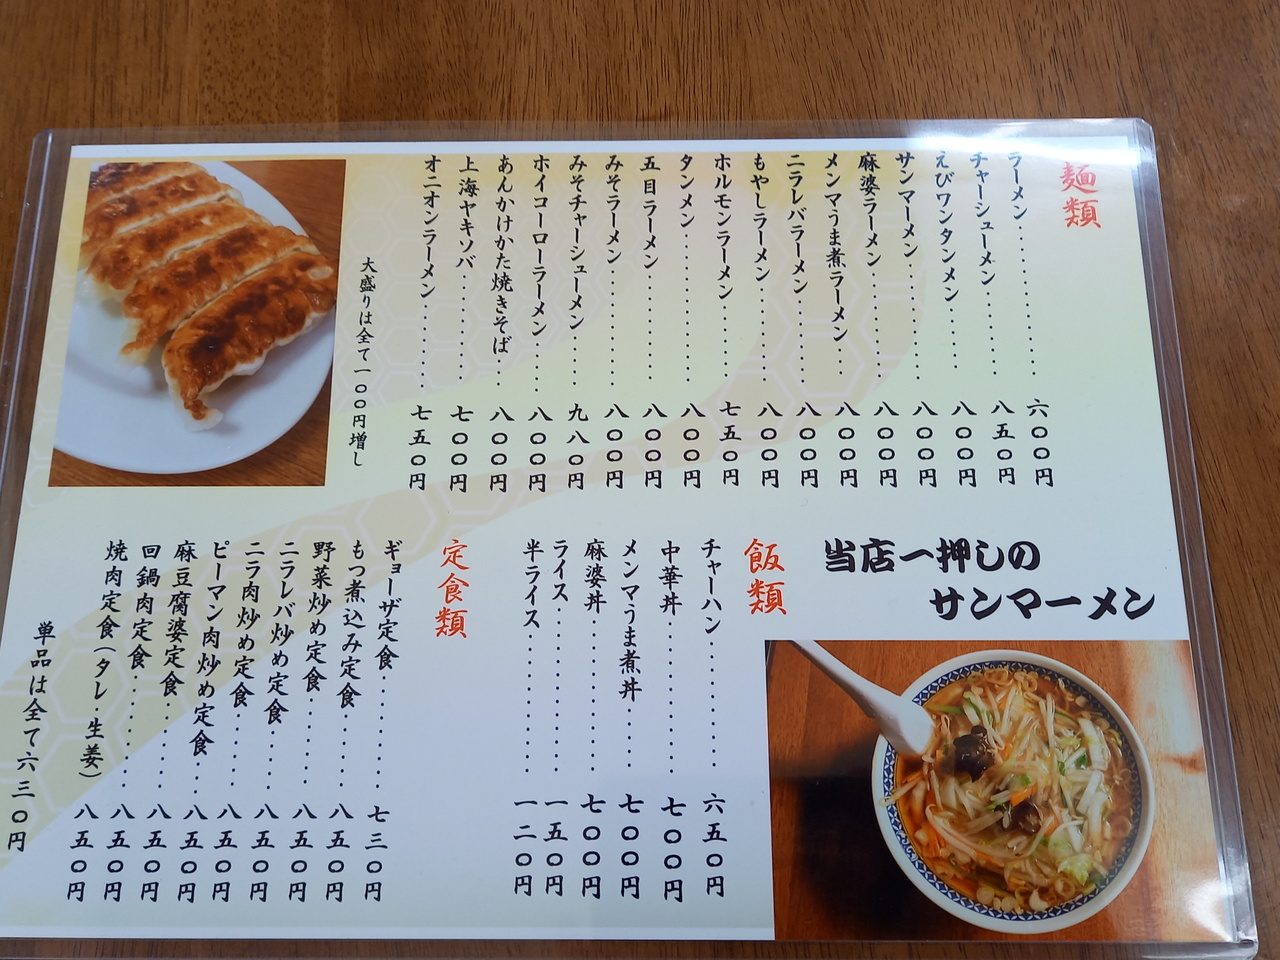 麺類
ラーメン………六〇〇円
チャーシューメン………八五〇円
えびワンタンメン………八〇〇円
サンマーメン………八〇〇円
麻婆ラーメン………八〇〇円
メンマうま煮ラーメン………八〇〇円
ニラレバラーメン………八〇〇円
もやしラーメン………八〇〇円
ホルモンラーメン………七五〇円
タンメン………八〇〇円
五目ラーメン………八〇〇円
みそラーメン………八〇〇円
みそチャーシューメン………九八〇円
ホイコーローラーメン………八〇〇円
あんかけかた焼きそば………八〇〇円
上海ヤキソバ………七〇〇円
オニオンラーメン………七五〇円
大盛りは全て一〇〇円増し
当店一押しの
サンマーメン
飯類
チャーハン………六五〇円
中華丼………七〇〇円
メンマうま煮丼………七〇〇円
麻婆丼………七〇〇円
ライス………一五〇円
半ライス………一二〇円
定食類
ギョーザ定食………七三〇円
もつ煮込み定食………八五〇円
野菜炒め定食………八五〇円
ニラレバ炒め定食………八五〇円
ニラ肉炒め定食………八五〇円
ピーマン肉炒め定食………八五〇円
麻豆腐婆定食………八五〇円
回鍋肉定食………八五〇円
焼肉定食(タレ・生姜)八五〇円
単品は全て六三〇円